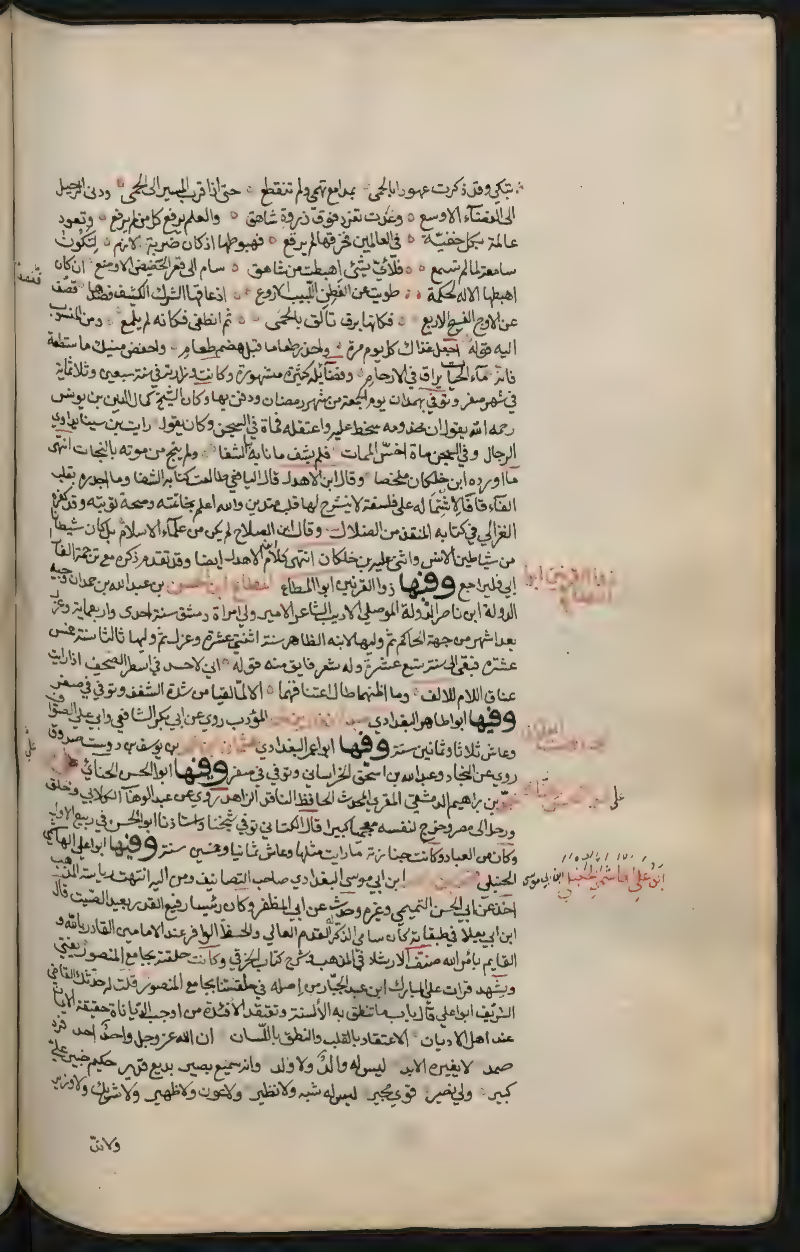 تبكي وقد ذكرت عهودا بالحمى بمدامع تهمي ولم تنقطع حتى اذا قرب المسير الى الحمى ودنى الرحيل
الى الفضآء الاوسع وغدت تغرد فوق ذروة شاهق والعلم يرفع كل من لم يرفع وتعود
عالمة بكل خفيّة في العالمين فخرقها لم يرقع فهبوطها اذ كان ضربة لازم لتكون
سامعة لما لم تسمع فلأيّ شئ اهبطت من شاهق سام الى قعر الحضيض الاوضع ان كان
اهبطها الاله لحكمة طويت عن الفطن اللبيب الاروع اذ عاقها الشرك الكثيف فصدها قفص
عن الاوج الفسيح الاربع فكانها برق تالق بالحمى ثم انطفى فكانه لم يلمع ومن المنسوب
اليه قوله اجعل غذاك كل يوم مرة واحذر طعاما قبل هضم طعام واحفض منيك ما ستطعة
فانه مآء الحيا يراق في الارحام وفضايله كثيرة مشهورة وكانت ولادته في سنة سبعين وثلاثماية
في شهر صفر وتوفي بهمدان يوم الجمعة من شهر رمضان ودفن بها وكان الشيخ كمال الدين بن يونس
رحمه الله يقول ان مخدومه سخط عليه واعتقله فماة في السجن وكان يقول رايت بن سينا يداوي
الرجال وفي السجن ماة اخسّ الممات فلم يشف ما نابه الشفا ولم ينج من موته بالنجات انتهى
ما اورده ابن خلكان ملخصا وقال ابن الاهدل قال اليافي طالعت كتابه الشفا وما اجدره بقلب
الفآء قافا لاشتماله على فلسفة لا ينشرح لها قلب متدين والله اعلم بخاتمته وصحة توبته وقد كفره
الغزالي في كتابه المنقذ من الضلال وقال ابن الصلاح لم يكن من علمآء الاسلام بل كان شيطانا
من شياطين الانس واثنى عليه بن خلكان انتهى كلام الاهدل ايضا وقد تقدم ذكره مع ترجمة الفارابي
فليراجع وفيها ذوا القرنين ابوا المطاع بن الحسن بن عبد الله بن حمدان وجيه
الدولة ابن ناصر الدولة الموصلي الاديب الشاعر الامير ولي امراة دمشق سنة احدى واربعماية وعزل
بعد اشهر من جهة الحاكم ثم وليها لابنه الظاهر سنة اثنتي عشرة وعزل ثم وليها ثالثا سنة خمس
عشرة فبقي الى سنة تسع عشرة وله شعر فايق منه قوله اني لاحسد في اسطر الصحف اذا رايت
عناق اللام للالف وما اظنهما طال اعتناقهما الا لما لقيا من شدة الشغف وتوفي في صفر
وفيها ابوا طاهر البغدادي المؤدب روي عن ابي بكر الشافعي وابي علي الصواف
وعاش ثلاثا وثمانين سنة وفيها ابوا عمر البغدادي عثمان بن بن يوسف بن دوست صدوق
روي عن النجاد وعبد الله بن اسحق الخراساني وتوفي في صفر وفيها ابوا الحسن الحنائي
بن ابراهيم الدمشقي المقري المحدث الحافظ الناقد الزاهد روي عن عبد الوهاب الكلابي وخلق
ورحل الى مصر وخرج لنفسه معجما كبيرا قال الكتاني توفي شيخنا واستاذنا ابوا الحسن في ربيع الاول
وكان من العباد وكانت جنازته ما رايت مثلها وعاش ثمانيا وخمسين سنة وفيها ابوا علي الهاشمي
الحنبلي ابن ابي موسى البغدادي صاحب التصانيف ومن اليه انتهت رياسة المذهب
اخذ عن ابي الحسن التميمي وغيره وحدث عن ابي المظفر وكان رئيسا رفيع القدر بعيد الصيت قال
ابن ابي يعلا في طبقاته كان سامي الذكر له القدم العالي والحظ الوافر عند الامامين القادر بالله و
القايم بامر الله صنف الارشاد في المذهب وشرح كتاب الخرقي وكانت حلقته بجامع المنصور يفتي
ويشهد قرات على المبارك ابن عبد الجبار من اصله في حلقتنا بجامع المنصور قلت له حدثك القاضي
الشريف ابوا علي قال باب ما تنطق به الألسنة وتعتقد الأفئدة من اوجب الديانات حقيقة الايمان
عند اهل الاديان الاعتقاد بالقلب والنطق باللسان ان الله عز وجل واحد احد فرد
صمد لا يغيره الابد ليس له والد ولا ولد وانه سميع بصير بديع قدير حكيم خبير علي
كبير ولي نصير قوي مجير ليس له شبه ولا نظير ولا عون ولا ظهير ولا شريك ولا وزير
ولا ندّ
ذوا القرنين ابوا المطاع